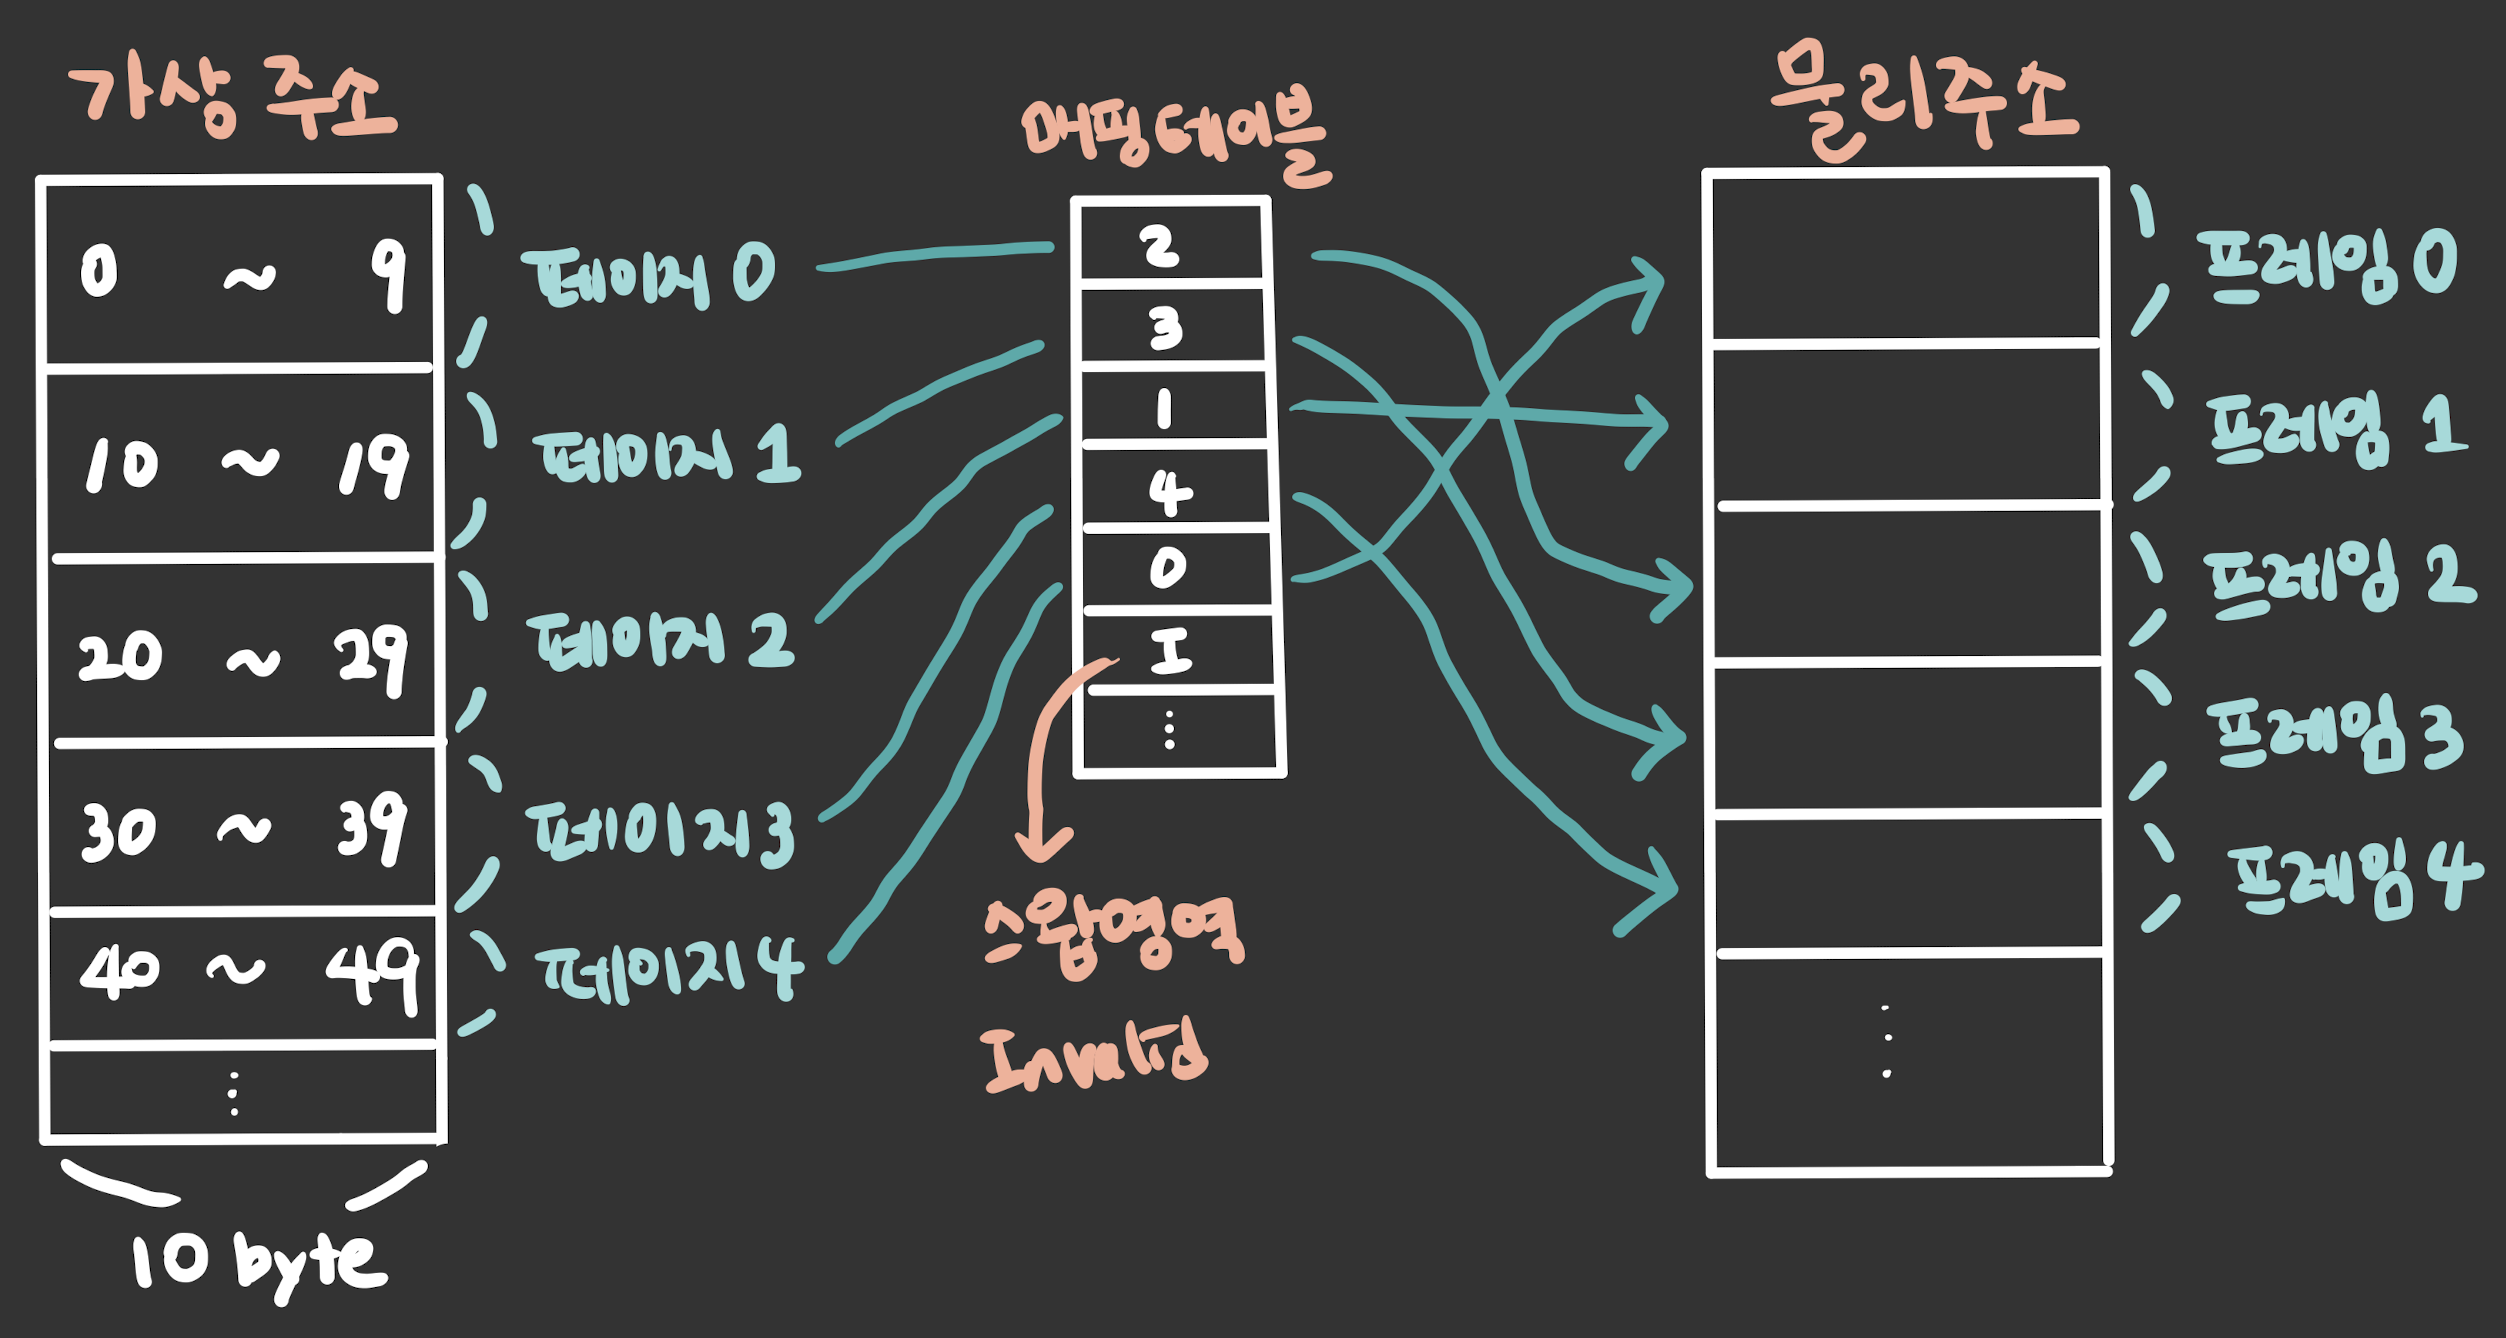 가상 주소
0 ~ 9
10 ~ 19
20 ~ 29
30 ~ 39
40 ~ 49
10 byte
페이지 0
페이지 1
페이지 2
페이지 3
페이지 4
매핑테이블
2
3
1
4
0
I
스왑영역
Invalid
물리주소
프레임 0
프레임 1
프레임 2
프레임 3
프레임 4